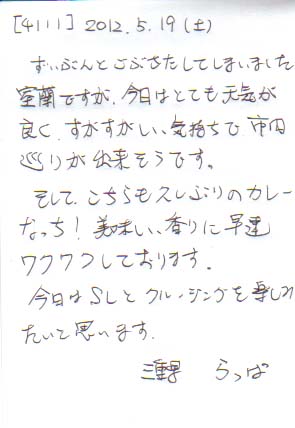 [4111] 2012.5.19(土)
ずいぶんとごぶさたしてしまいました
室蘭ですが、今日はとても天気が
良く、すがすがしい気持ちで市内
巡りが出来そうです。
そして、こちらも久しぶりのカレー
なっち！美味しい香りに早速
ワクワクしております。
今日はSLとクルージングを楽しみ
たいと思います。
三重県 らっぱ